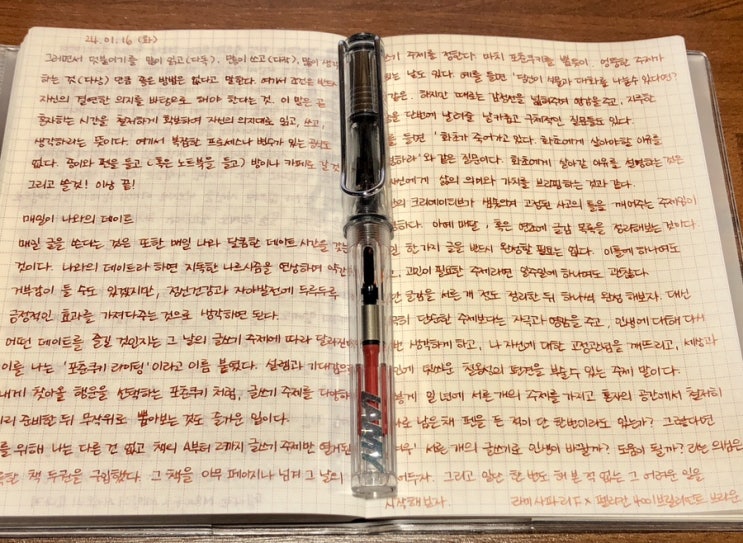 24.01.16 (화)
그러면서 덧붙이기를 많이 읽고(다독), 많이 쓰고(다작), 많이 생각
하는 것(다상) 만큼 좋은 방법은 없다고 말한다. 여기서 조건은 반드시
자신의 절연한 의지를 바탕으로 해야 한다는 것. 이 말은 곧
혼자하는 시간을 철저하게 확보하며 자신의 의지대로 읽고, 쓰고,
생각하라는 뜻이다. 여기서 복잡한 프로세스나 변수가 있는
없다. 종이와 펜을 들고 (혹은 노트북을 들고) 방이나 카페로 갈 것
그리고 쓸것! 이상 끝!
매일이 나와의 데이트
매일 글을 쓴다는 것은 또한 매일 나와 달콤한 데이트 시간을 갖는
것이다. 나와의 데이트라 하면 지독한 나르시즘을 연상하여 약간
거부감이 들 수도 있겠지만, 정신건강과 자아발전에 두루두루
긍정적인 효과를 가져다주는 것으로 생각하면 된다.
어떤 데이트를 즐길 것인지는 그 날의 글쓰기 주제에 따라 달라진
이를 나는 '포춘쿠키 라이팅'이라고 이름 붙였다. 설렘과 기대감으
내게 찾아올 행운을 선택하는 포춘쿠키 처럼, 글쓰기 주제를 다양하
리 준비한 뒤 무작위로 뽑아보는 것도 즐거운 일이다.
를 위해 나는 다른 건 없고 책의 A부터 Z까지 글쓰기 주제만
한 책 두권을 구입했다. 그 책을 아무 페이지나 넘겨 그 날의
쓰기 주제를 정한다. 마치 포춘쿠키를 엉뚱한 주제가
되는 날도 있다. 예를 들면 '당신이 식물과 대화를 나눌수 있다면?'
같은. 하지만 때로는 감정선을 넓혀주며 영감을 주고, 지루한
을 단번에 날려줄 날카롭고 구체적인 질문들도 있다.
들 들면 '화초가 죽어가고 있다. 화초에게 살아야할 이유를
하라'와 같은 질문이다. 화초에게 살아갈 이유를 설명하는 것은
자신에게 삶의 의미와 가치를 브리핑하는 것과 같다.
의 크리에이티브가 고정된 사고의 틀을 깨어주는 주제임이
하다. 아예 매달, 혹은 연초에 글감 목록을 정리해보는 것이다.
일 한가지 글을 반드시 완성할 필요는 없다. 이틀에 하나여도
, 고민이 필요한 주제라면 일주일에 하나여도 괜찮다.
단 글감을 서른 개 정도 정리한 뒤 하나씩 완성 해보자. 대신
단순한 주제보다는 자극과 영감을 주고, 인생에 대해 다시
생각하게 하고, 나 자신에 대한 고정관념을 깨뜨리고, 세상과
인에 편견을 부술수 있는 주제 말이다.
하게 일년에 서른 개의 주제를 가지고 혼자의 공간에서 철저히
나로 남은채 펜을 든 적이 단 한번이라도 있는가? 그렇다면
'서른 개의 글쓰기로 인생이 바뀔까? 도움이 될까?' 라는 의심은
어두자. 그리고 일단 한 번도 해 본 적 없는 그 어려운 일을
시작해보자.
라미 사파리 F x 펠리칸 4001 브릴리언트 브라운
LAMY